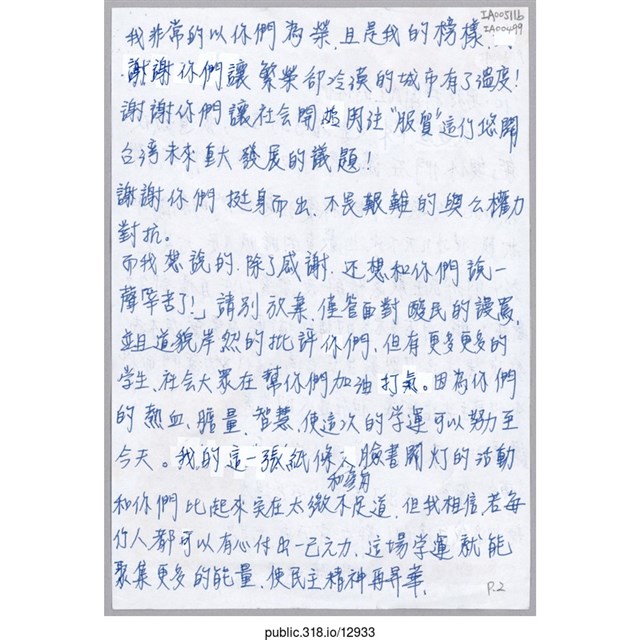 IA00511b
IA00499
我非常的以你們為榮,且是我的榜樣...
謝謝你們讓繁榮卻冷漠的城市有了溫度!
謝謝你們讓社会開始関注"服貿"這个悠関
台湾未來重大發展的議題!
謝謝你們挺身而出,不畏艱難的與公權力
對抗。
而我想說的,除了感謝,还想和你們說一
聲辛苦了!」請別放棄,儘管面對酸民的謾罵,
並且道貌岸然的批評你們,但有更多更多的
学生、社会大眾在幫你們加油打氣。因為你們
的熱血、膽量、智慧,使這次的学運可以努力至
今天。我的這一張紙條、臉書関灯的活動
和參與
和你們比起來实在太微不足道,但我相信若每
个人都可以有心付出一己之力,這場学運就能
聚集更多的能量,使民主精神再昇華.
P.2
public.318.io/12933